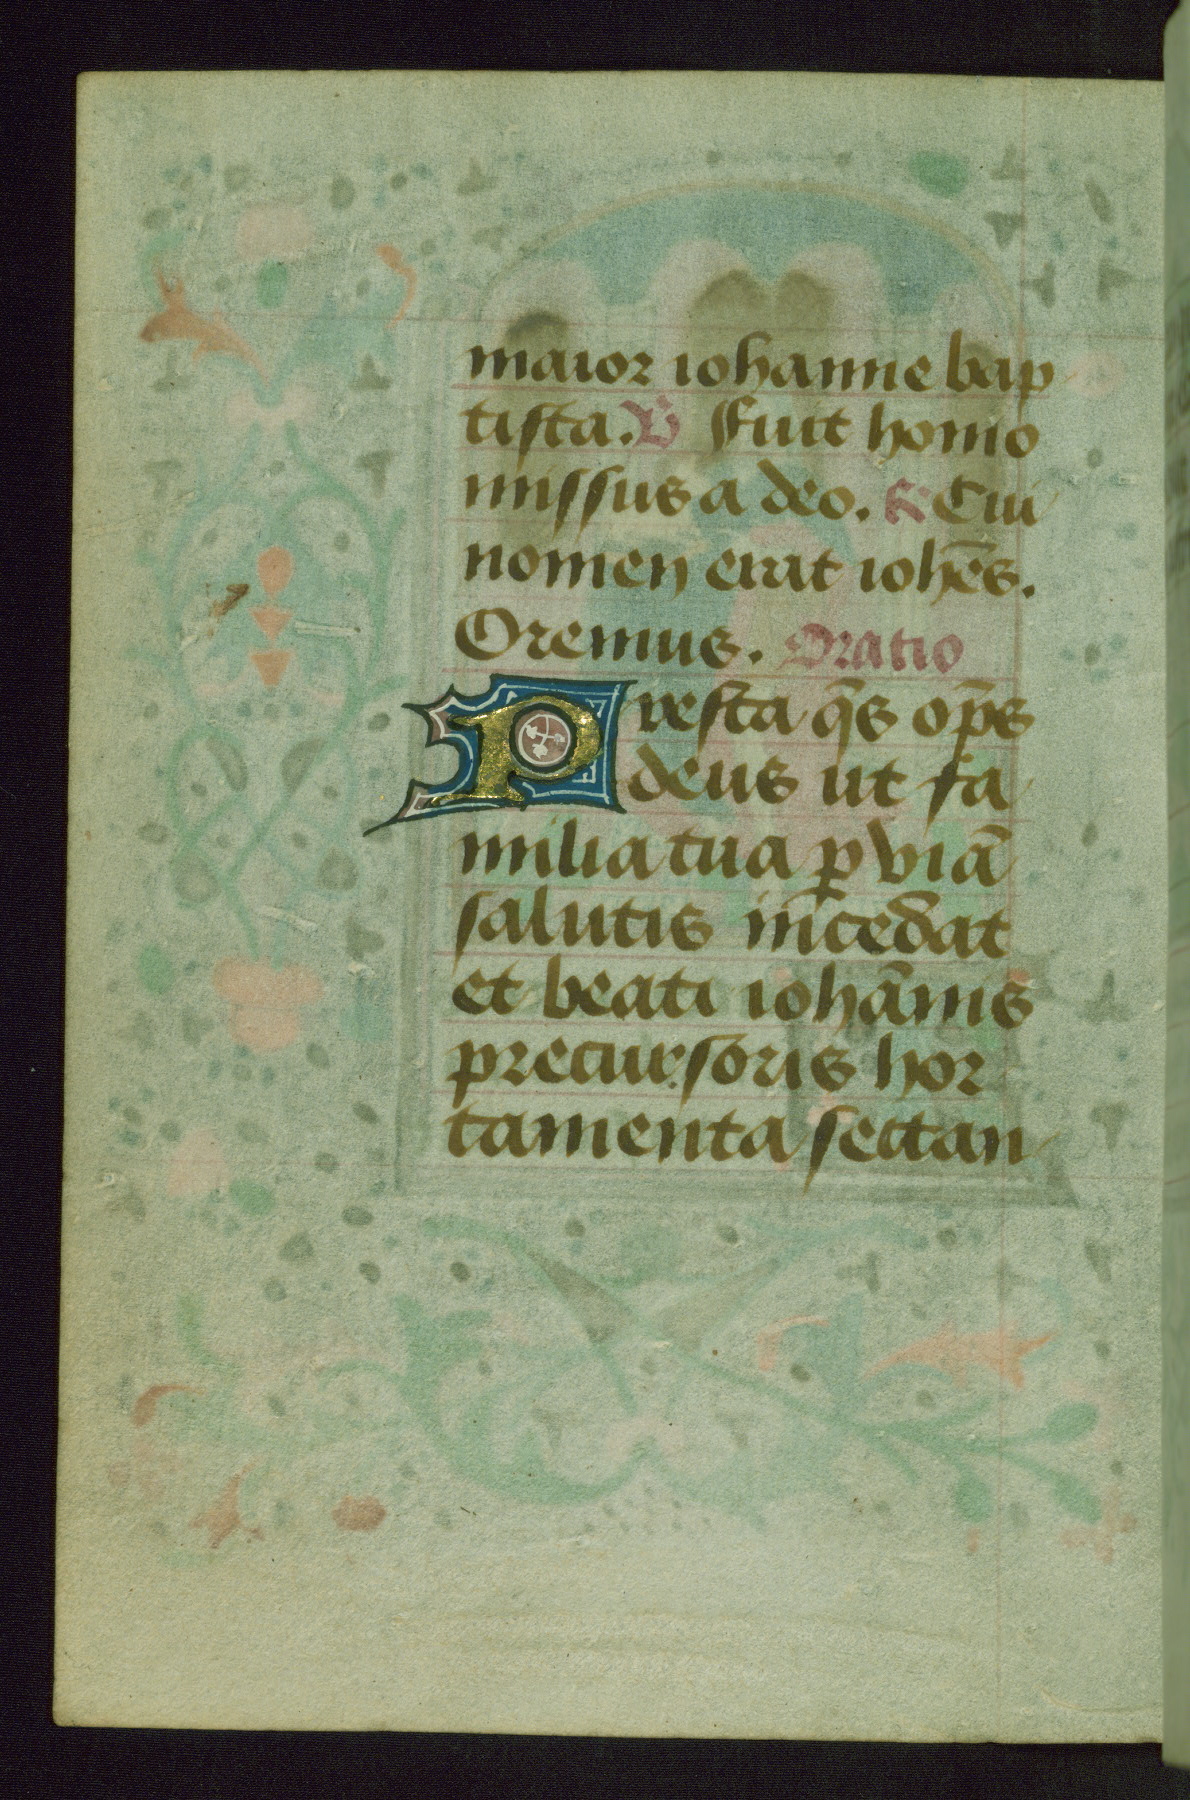 maior iohanne bap
tista. V Fuit homo
missus a deo. R Cui
nomen erat ioh̅es.
Oremus. Oratio
Presta q̅s op̅s
deus ut fa
milia tua p̱ via̅
salutis i̅ncedat
et beati ioha̅nis
precursoris hor
tamenta sectan